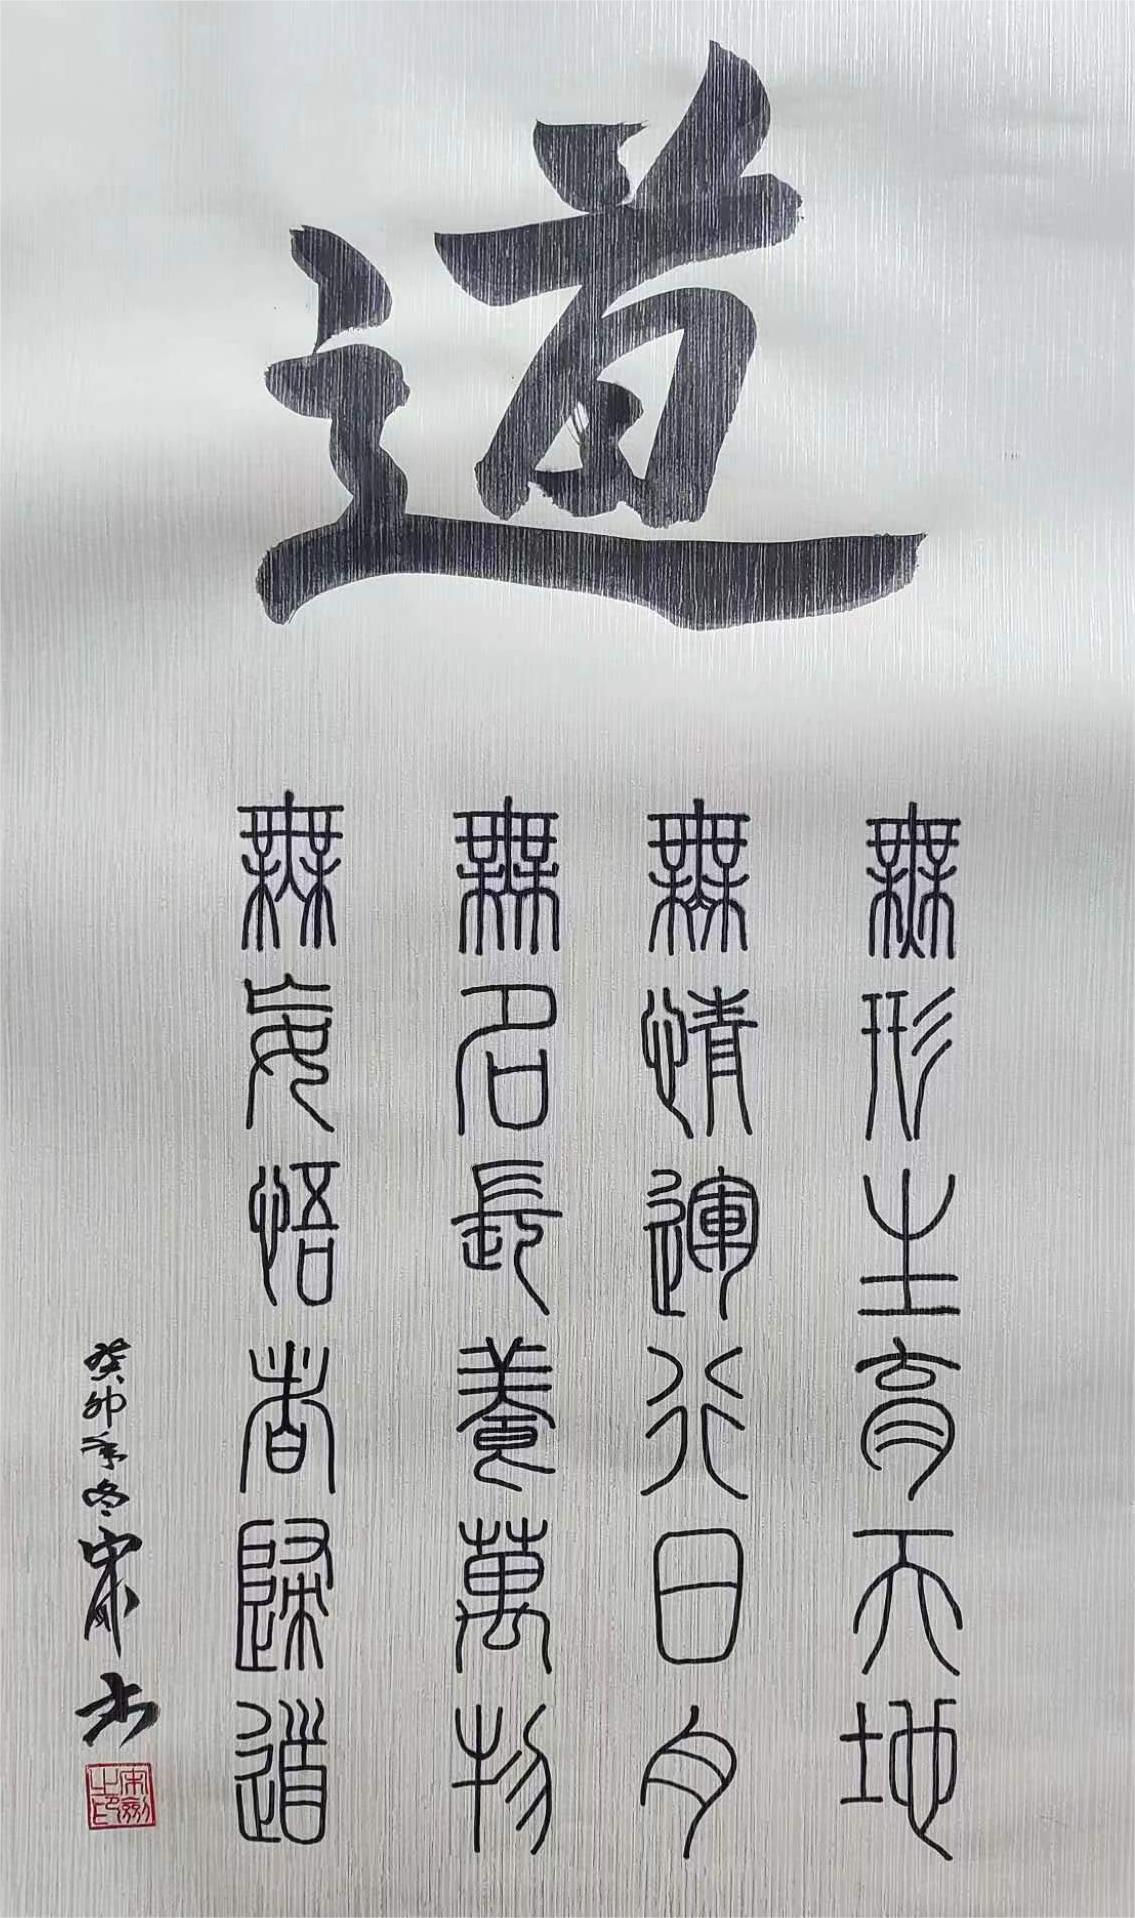 道
無形生育天地
無情運行日月
無名長養萬物
無妄悟者歸道
癸卯年冬